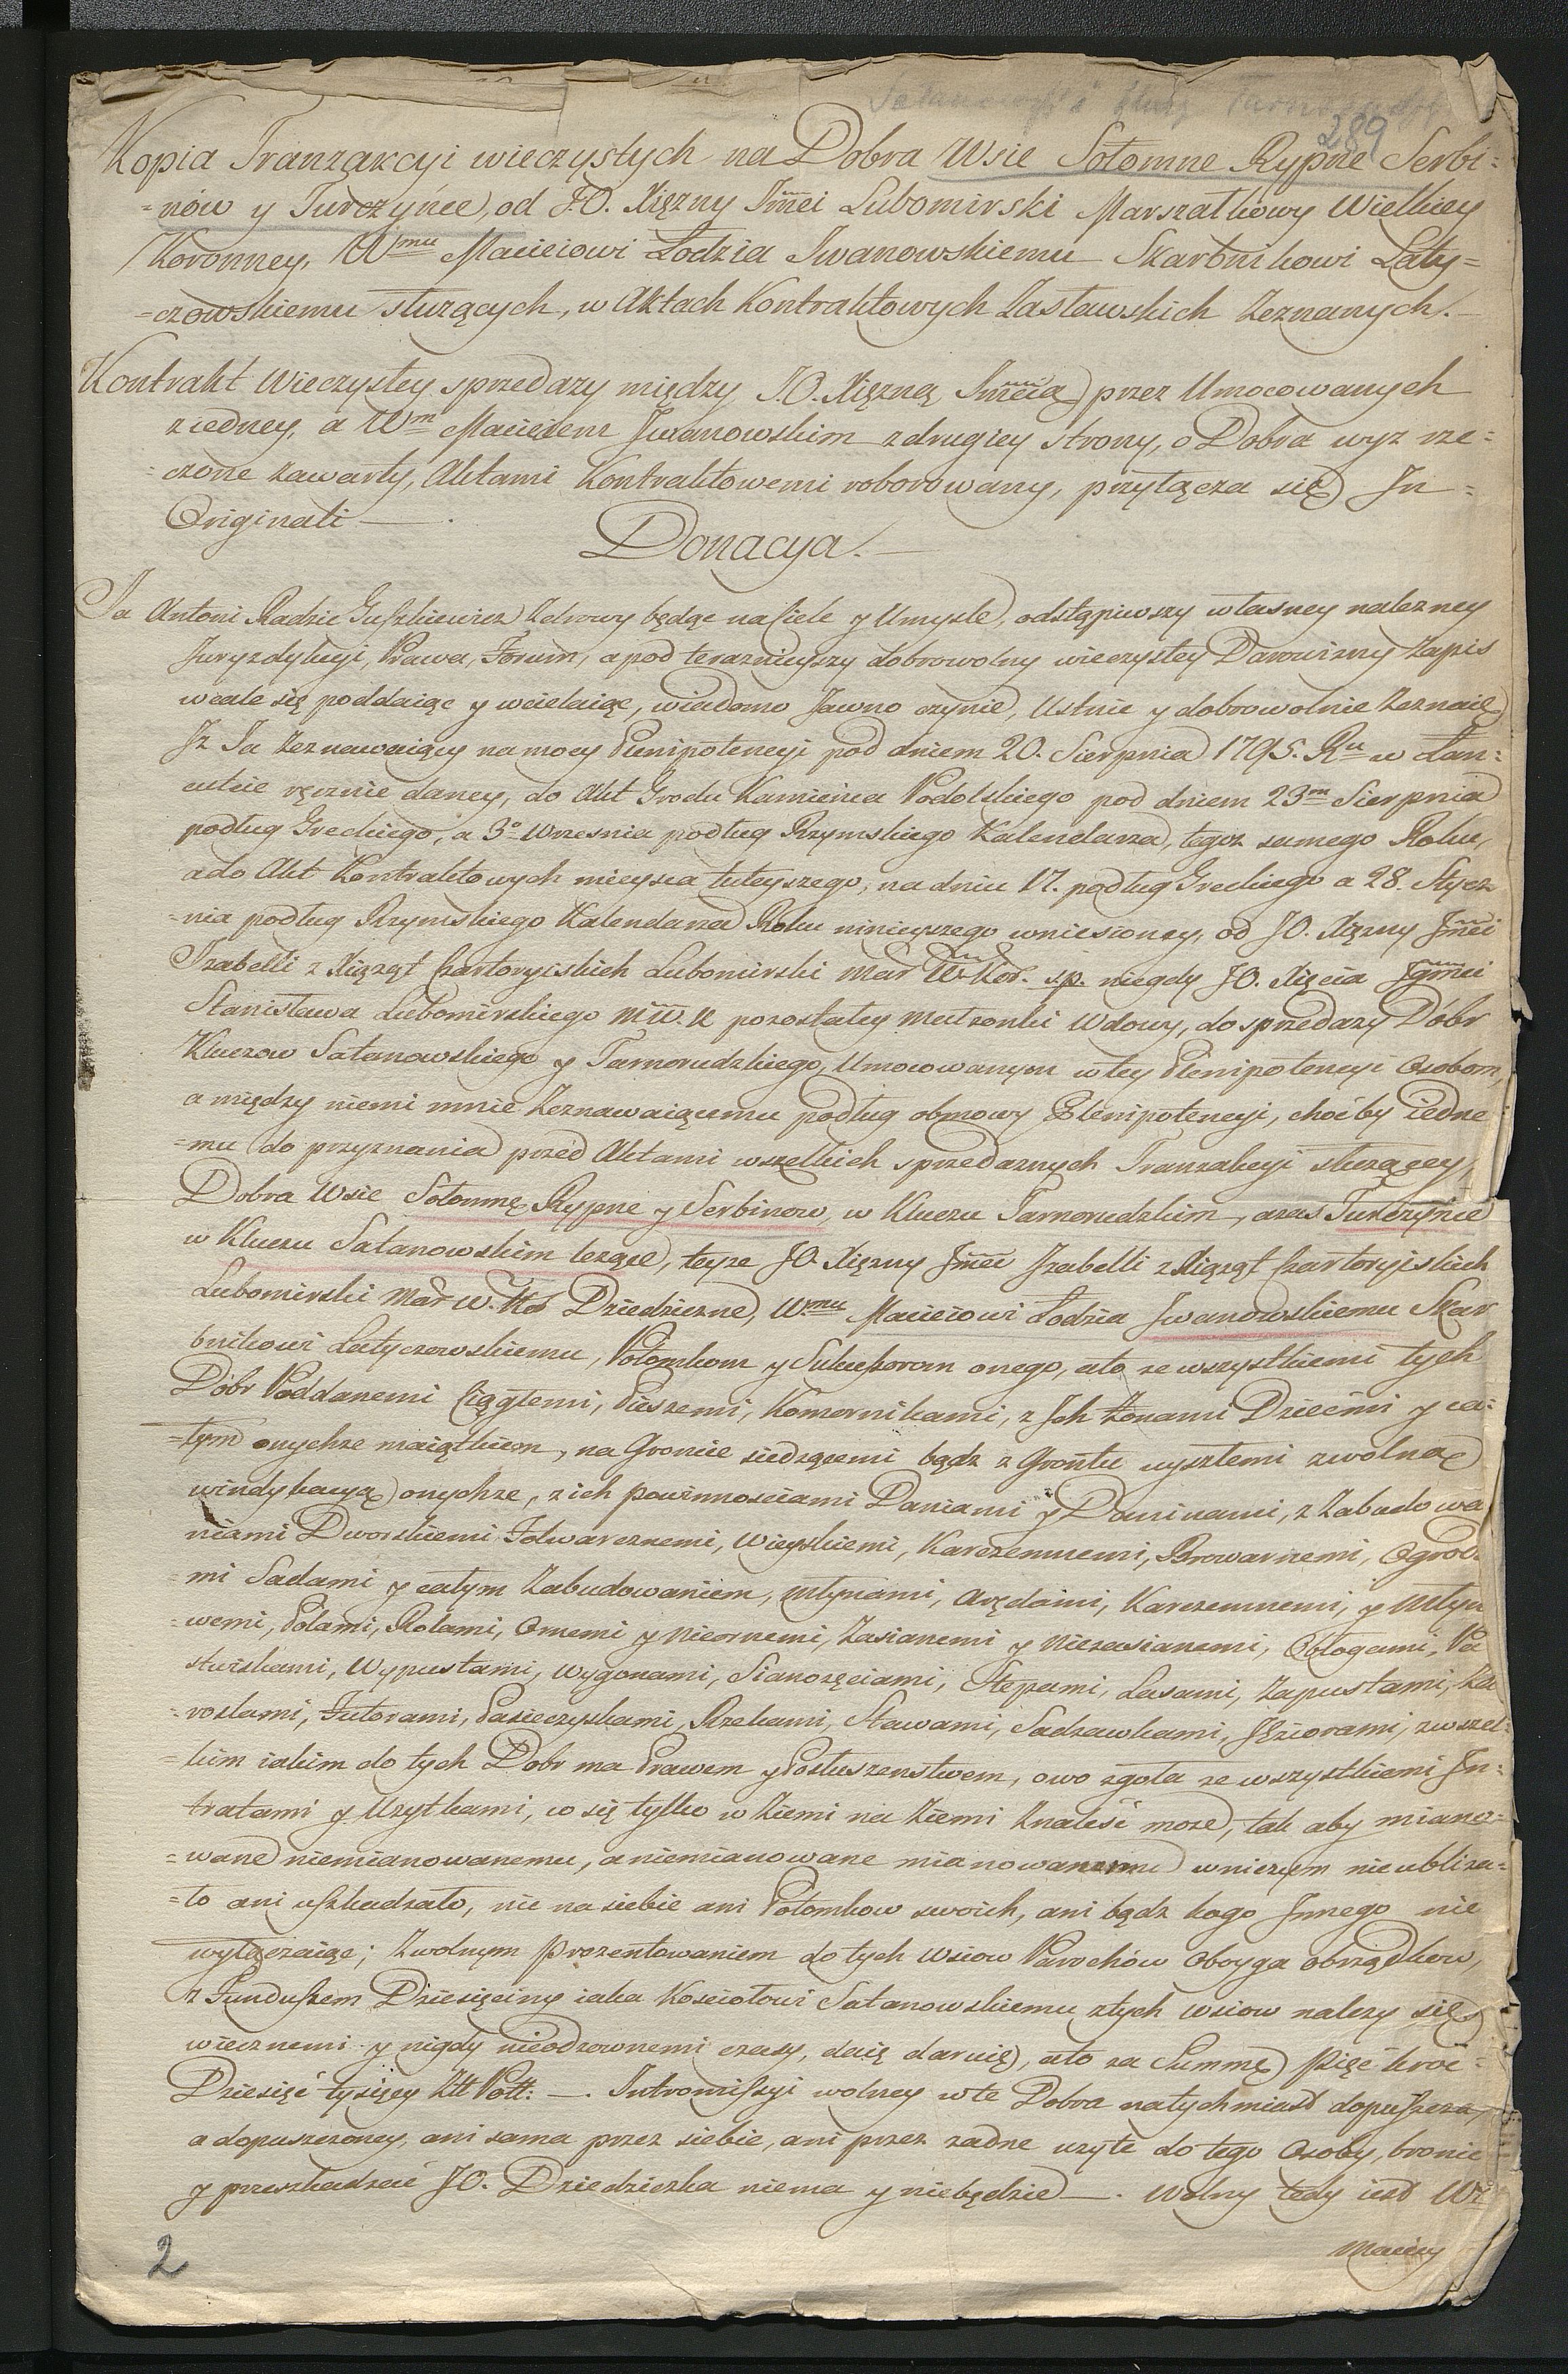 289
Kopia Tranzakcyi wieczystych na Dobra Wsie Sołomne Rypne Serbi=
=nów y Turczyńce, od J.O. Xiężny Jmci Lubomirski Marszałkowy Wielkiey
Koronney, Wmu Macieiowi Łodzia Iwanowskiemu Skarbnikowi Laty=
=czowskiemu służących, w Aktach Kontraktowych Zasławskich Zeznanych.
Kontrakt Wieczystey sprzedazy między J.O. Xiężną Jmcią przez Umocowanych
z iedney, a Wm Macieiem Iwanowskim z drugiey strony, o Dobra wyz rze=
=czone zawarty, Aktami Kontraktowemi roborowany, przyłącza się In
Originali.
Donacya.
Ja Antoni Radzic Guszkiewicz Zdrowy będąc na Ciele y Umyśle, odstąpiwszy własney nalezney
Juryzdykcyi, Prawa, Forum, a pod terazniejszy dobrowolny wieczystey Darowizny Zapis
wcale się poddaiąc y wcielaiąc, wiadomo Jawno czynię, Ustnie y dobrowolnie Zeznaię
Jż Ja Zeznawaiący na mocy Plenipotencyi pod dniem 20. Sierpnia 1795. Ru w Łan=
cucie ręcznie daney, do Akt Grodu Kamieńca Podolskiego pod dniem 23m Sierpnia
podług Greckiego, a 3o Wrzesnia podług Rzymskiego Kalendarza, tegoz samego Roku,
a do Akt Kontraktowych mieysca tuteyszego, na dniu 17. podług Greckiego a 28. Stycz
=nia podług Rzymskiego Kalendarza Roku ninieyszego wniesioney, od J.O. Xiężny Jmci
Izabelli z Xiążąt Czartoryiskich Lubomirski Mar W. Kor. s.p. niegdy J.O. Xięcia Jgmci
Stanisława Lubomirskiego M.W.K pozostałey małzonki Wdowy, do sprzedazy Dóbr
Kluczow Satanowskiego y Tarnorudzkiego, Umocowanym w tey Plenipotencyi Osobom,
a między niemi mnie Zeznawaiącemu podług obmowy Plenipotencyi, choćby iedne
=mu do przyznania przed Aktami wszelkich sprzedaznych Tranzakcyi służącey,
Dobra Wsie Sołomnę Rypne y Serbinow, w Kluczu Tarnorudzkim, oraz Turczyńce
w Kluczu Satanowskim lezące, teyze J.O. Xiężny Jmci Izabelli z Xiążąt Czartoryiskich
Lubomirski Mar W. Kor Dziedziczne, W.mu Macieiowi Łodzia Iwanowskiemu Skar
bnikowi Latyczowskiemu, Potomkom y Sukcessorom onego, a to ze wszystkiemi tych
Dóbr Poddanemi Ciągłemi, Pieszemi, Komornikami, z Jch Zonami Dziećmi y ca=
=łym onychze maiątkiem, na Groncie siedzącemi bądz z Grontu uszłemi z wolną
windykacyą onychze, z ich powinnosciami Daniami y Daninami, z Zabudowa
niami Dworskiemi Folwarcznemi, Wieyskiemi, Karczemnemi, Browarnemi, Ogroda
=mi Sadami y całym Zabudowaniem, młynami, Arędami, Karczemnemi, y Młyn
=wemi, Polami, Rolami, Ornemi y Nieornemi, Zasianemi y Niezasianemi, Obłogami, Pa
stwiskami, Wypustami, Wygonami, Sianozęciami, Stepami, Lasami, Zapustami, Za
=roslami, Futorami, Pasieczyskami, Rzekami, Stawami, Sadzawkami, Jęziorami, z wszel=
=kim iakim do tych Dobr ma Prawem y Posłuszenstwem, owo zgoła ze wszystkiemi In=
tratami y Uzytkami, co się tylko w Ziemi na Ziemi Znaleść moze, tak aby miano=
=wane niemianowanemu, a niemianowane mianowanemu w niczym nie ubliza=
=ło ani uszkadzało, nic na siebie ani Potomkow swoich, ani bądz kogo Jnnego nie
wyłączaiąc; Z wolnym Prezentowaniem do tych Wsiow Parochów Oboyga obrządkow,
z Funduszem Dziesięciny iaka Kosciołowi Satanowskiemu z tych wsiow nalezy się
wiecznemi y nigdy nieodzownemi czasy, daię daruię, a to za Summę Pięć kroć
Dziesięć tysięcy Złł Poll: —. Intromissyi wolney w te Dobra natychmiast dopuszcza,
a dopuszczoney, ani sama przez siebie, ani przez zadne uzyte do tego Osoby, bronic
y przeszkadzać J.O. Dziedziczka niema y niebędzie —. Wolny tedy iest Wż
Maciey
2